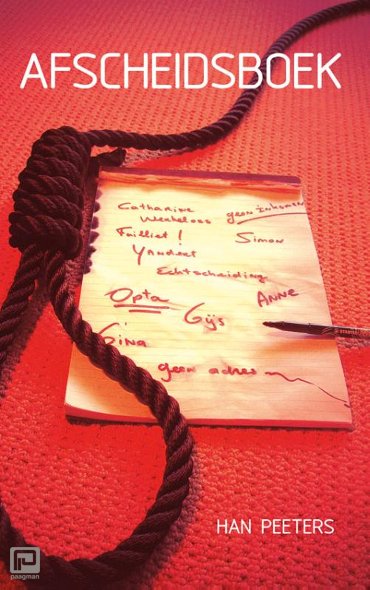 AFSCHEIDSBOEK
Catharine
Werkeloos geen inkomen
Failliet! Simon
Echtscheiding
Opta Gijs ANNE
Gina
geen adres
HAN PEETERS
paagman